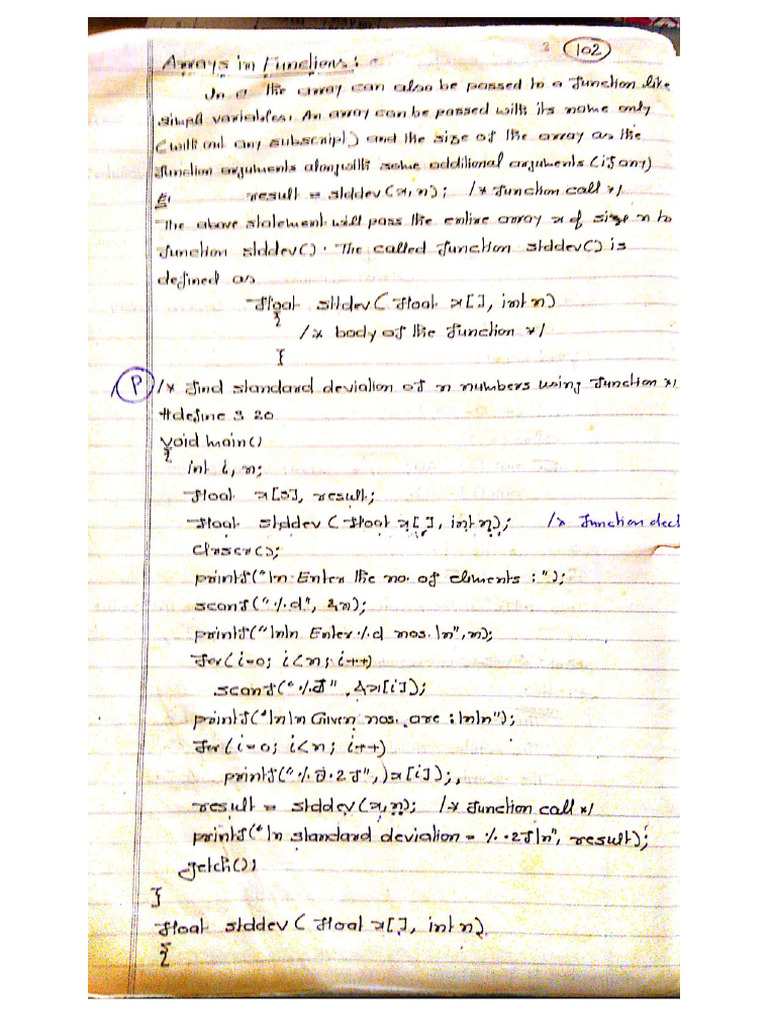 102
Arrays in Functions :
In a the array can also be passed to a function like
simpl variables. An array can be passed with its name only
(with out any subscript) and the size of the array as the
function arguments alongwith some additional arguments (if any)
E: result = stddev(x,n); /* function call */
The above statement will pass the entire array x of size n to
function stddev(). The called function stddev() is
defined as
float stddev( float x[], int n)
{
/* body of the function */
}
P /* find standard deviation of n numbers using function */
#define S 20
void main()
{
int i, n;
float x[S], result;
float stddev ( float x[], int n); /* function decl
clrscr();
printf("\n Enter the no. of elments :");
scanf("%d", &n);
printf("\n\n Enter %d nos. \n",n);
for(i=0; i<n; i++)
scanf("%f", &x[i]);
printf("\n\n Given nos. are : \n\n");
for(i=0; i<n; i++)
printf("%8.2f",)x[i]);,
result = stddev(x,n); /* function call */
printf("\n standard deviation = %.2f\n", result);
getch();
}
float stddev( float x[], int n)
{